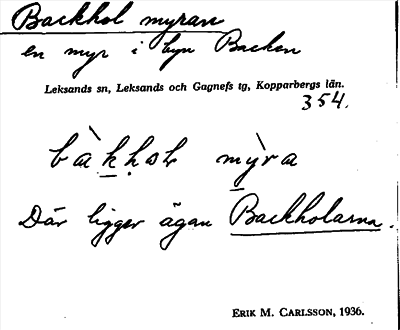 Backhol myran
en myr i byn Backen
Leksands sn, Leksands och Gagnefs tg, Kopparbergs län.
354.
bàk̲ḥol mỳ̲ra
Där ligger ägan Backholarna.
ERIK M. CARLSSON, 1936.